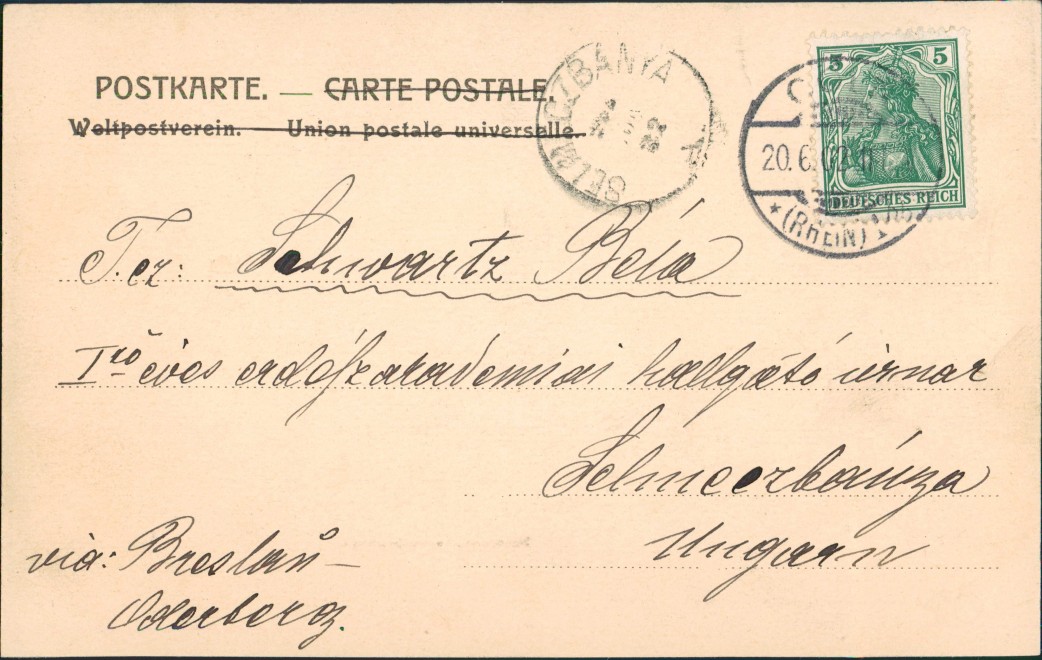 POSTKARTE. — CARTE POSTALE.
Weltpostverein. — Union postale universelle.
SELMECZBÁNYA
5 5
DEUTSCHES REICH
20.6.02
* (RHEIN) 1
T. cz: Schwartz Béla
I ső éves erdőszakadémiai hallgató úrnak
Selmeczbánya
Ungarn
via: Breslau –
Oderberg.